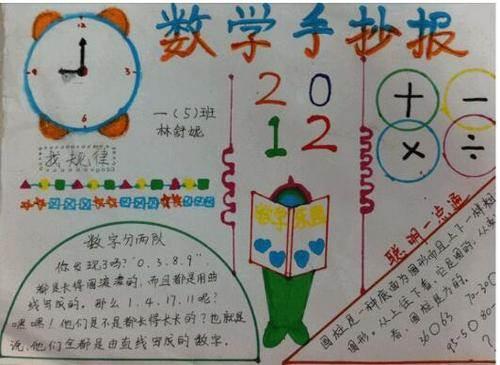 数学手抄报
12
3
6
9
一(5)班
林舒妮
20
12
+ −
× ÷
找规律
数学乐园
数字分两队
你发现了吗？"0.3.8.9."
都是长得圆滚滚的，而且都是用曲
线写成的。那么1.4.17.11呢？
嘿嘿！他们是不是都长得长长的？也就是
说，他们全都是由直线写成的数字。
聪明一点通
圆柱是一种底面为圆形而且上下一样粗
圆形。从上往下看，它是圆的，从
看，圆柱是方的。
36 063
70-30
95-50
80